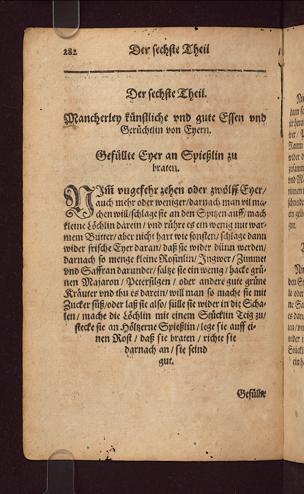 282 Der sechste Theil
Der sechste Theil.
Mancherley künstliche vnd gute Essen vnd
Gerüchtlin von Eyern.
Gefüllte Eyer an Spießlin zu
braten.
Nim̃ vngefehr zehen oder zwölff Eyer/
auch mehr oder weniger/ darnach man vil ma-
chen will/ schlage sie an den Spitzen auff/ mach
kleine Löchlin darein/ vnd rühre es ein wenig mit war-
mem Butter/ aber nicht hart wie sonsten/ schlage dann
wider frische Eyer daran/ daß sie wider dünn werden/
darnach so menge kleine Rosinlin/ Ingwer/ Zimmet
vnd Saffran darunder/ saltze sie ein wenig/ hacke grü-
nen Majoron/ Petersilgen/ oder andere gute grüne
Kräuter vnd thu es darein/ will man so mache sie mit
Zucker süß/ oder laß sie also/ fülle sie wider in die Scha-
len/ mache die Löchlin mit einem Stücklin Teig zu/
stecke sie an Höltzerne Spießlin/ lege sie auff ei-
nen Rost/ daß sie braten/ richte sie
darnach an/ sie seind
gut.
Gefüllte